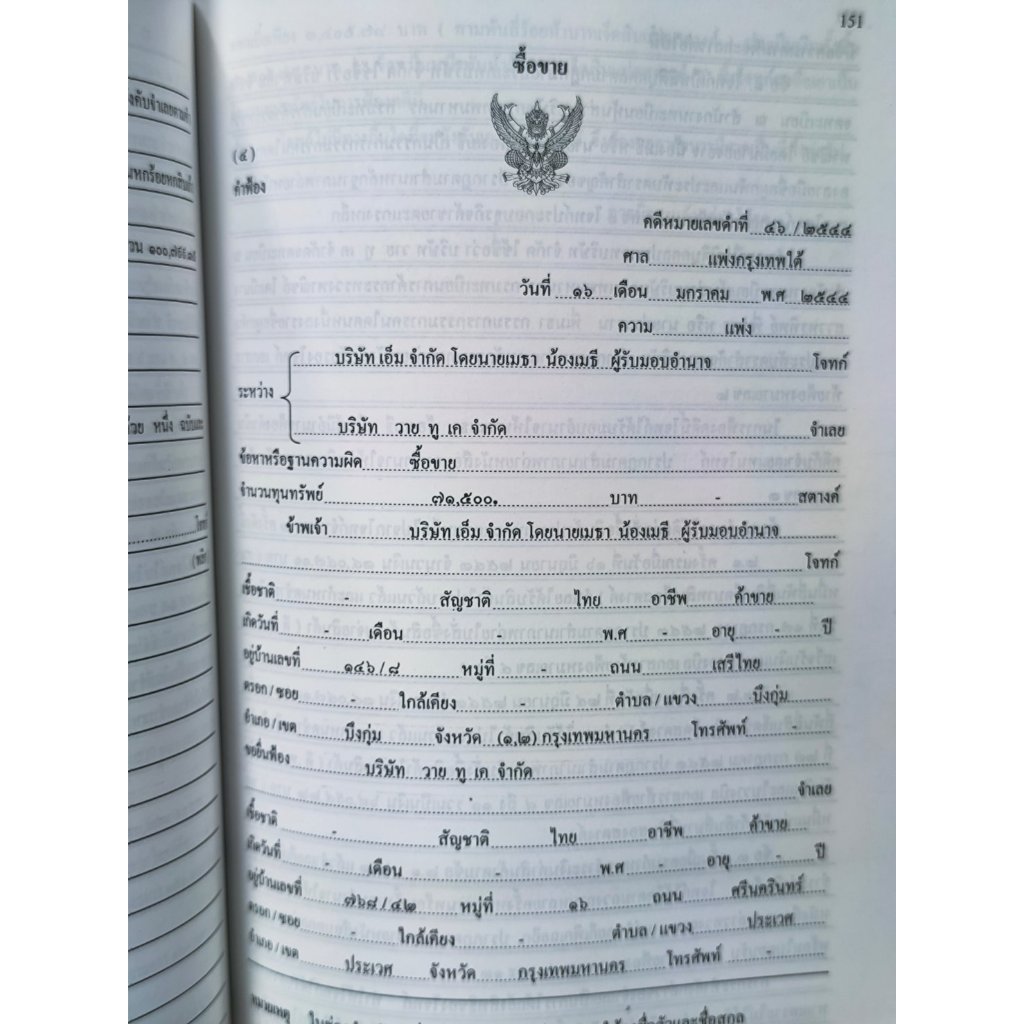 151
ซื้อขาย
(๕)
คำฟ้อง
คดีหมายเลขดำที่ ๔๖ /๒๕๔๔
ศาล แพ่งกรุงเทพใต้
วันที่ ๑๖ เดือน มกราคม พ.ศ ๒๕๔๔
ความ แพ่ง
บริษัท เอ็ม จำกัด โดยนายเมธา น้องเมธี ผู้รับมอบอำนาจ โจทก์
ระหว่าง
บริษัท วาย ทู เค จำกัด จำเลย
ข้อหาหรือฐานความผิด ซื้อขาย
จำนวนทุนทรัพย์ ๗๑,๕๐๐. บาท - สตางค์
ข้าพเจ้า บริษัท เอ็ม จำกัด โดยนายเมธา น้องเมธี ผู้รับมอบอำนาจ
โจทก์
เชื้อชาติ - สัญชาติ ไทย อาชีพ ค้าขาย
เกิดวันที่ - เดือน - พ.ศ - อายุ - ปี
อยู่บ้านเลขที่ ๑๔๖/๘ หมู่ที่ - ถนน เสรีไทย
ตรอก/ซอย - ใกล้เคียง - ตำบล/แขวง บึงกุ่ม
อำเภอ/เขต บึงกุ่ม จังหวัด (๑,๒) กรุงเทพมหานคร โทรศัพท์ -
ขอยื่นฟ้อง บริษัท วาย ทู เค จำกัด
จำเลย
เชื้อชาติ - สัญชาติ ไทย อาชีพ ค้าขาย
เกิดวันที่ - เดือน - พ.ศ - อายุ - ปี
อยู่บ้านเลขที่ ๗๖๘/๔๒ หมู่ที่ ๑๖ ถนน ศรีนครินทร์
ตรอก/ซอย - ใกล้เคียง - ตำบล/แขวง ประเวศ
อำเภอ/เขต ประเวศ จังหวัด กรุงเทพมหานคร โทรศัพท์ -
หมายเหตุ